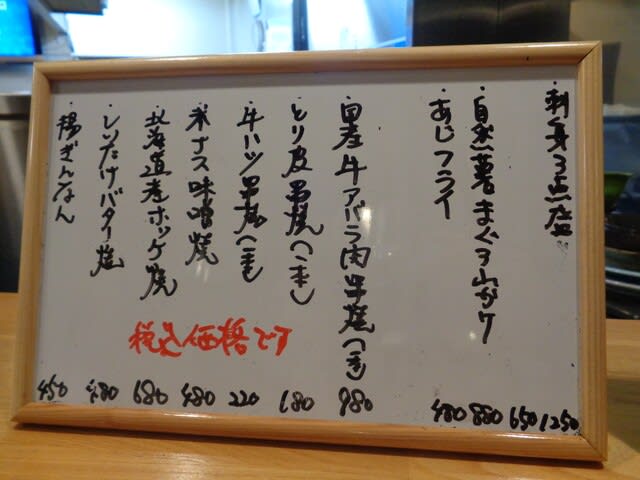 ・刺身3点盛 650 1250
・自然薯まぐろ山かけ 880
・あじフライ 480
・国産牛アバラ肉串焼(一本) 980
・とり皮串焼(一本) 180
・牛ハツ串焼(一本) 220
・米ナス味噌焼 480
・北海道産ホッケ焼 680
・しいたけバター焼 480
・揚ぎんなん 450
税込価格です